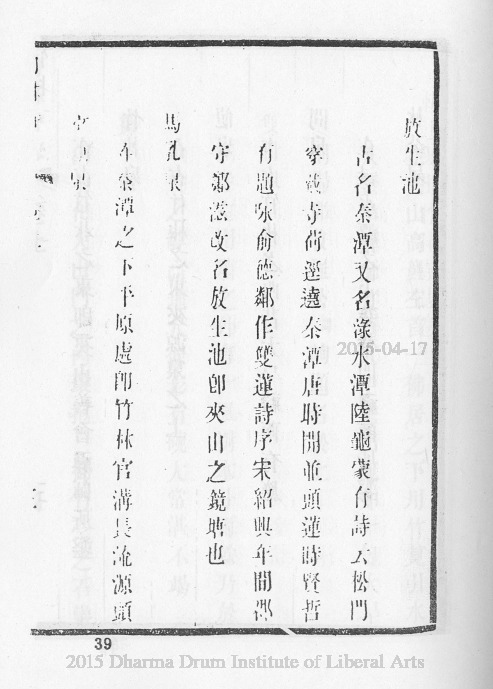 放生池
古名秦潭又名淥水潭陸龜蒙有詩云松門
穿戴寺荷逕遶秦潭唐時開並頭蓮時賢哲
有題咏俞德鄰作雙蓮詩序宋紹興年間郡
守鄭滋改名放生池卽夾山之鏡塘也
馬孔泉
在秦潭之下平原處卽竹林官溝長流源頭
泉
39
2015-04-17
2015 Dharma Drum Institute of Liberal Arts